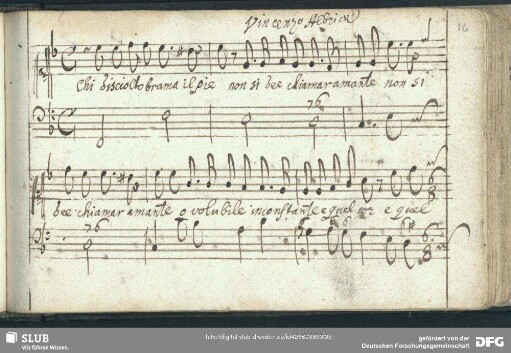 Vincenzo Albrici
16
Chi disciolto brama il pie non si dee chiamar amante non si
76
dee chiamar amante o volubile inconstante e quel cor e quel
76
6
SLUB
Wir führen Wissen.
gefördert von der
Deutschen Forschungsgemeinschaft
DFG